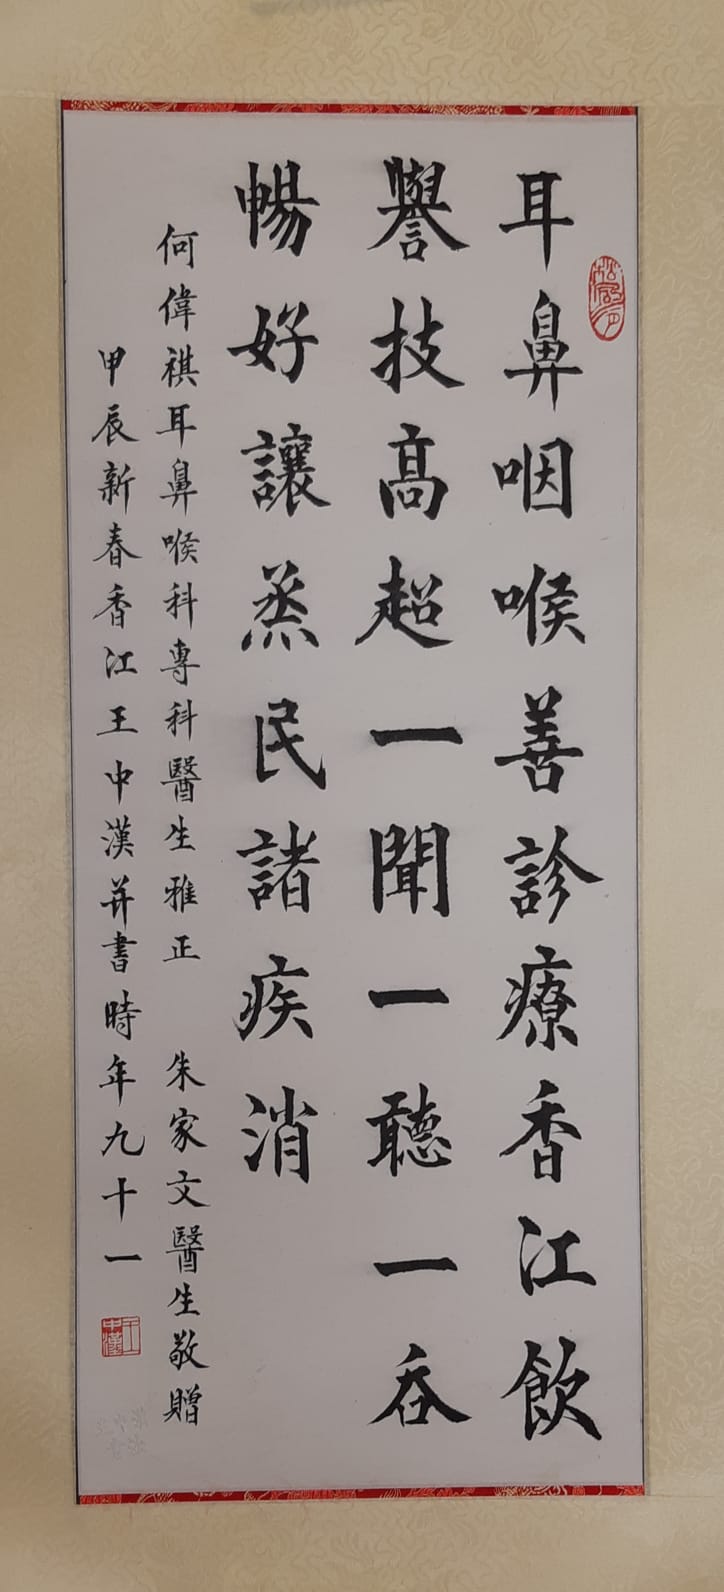 耳鼻咽喉善診療香江飲
譽技高超一聞一聽一吞
暢好讓蒸民諸疾消
何偉祺耳鼻喉科專科醫生雅正 朱家文醫生敬贈
甲辰新春香江王中漢并書時年九十一
王中漢